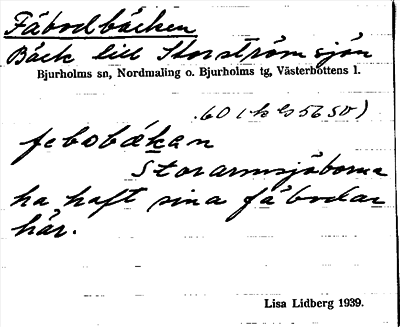 Fäbodbäcken
Bäck till Storströmsjön
Bjurholms sn, Nordmaling o. Bjurholms tg, Västerbottens l.
febobäkan
Storarmsjöborna
ha haft sina fäbodar
här.
Lisa Lidberg 1939.